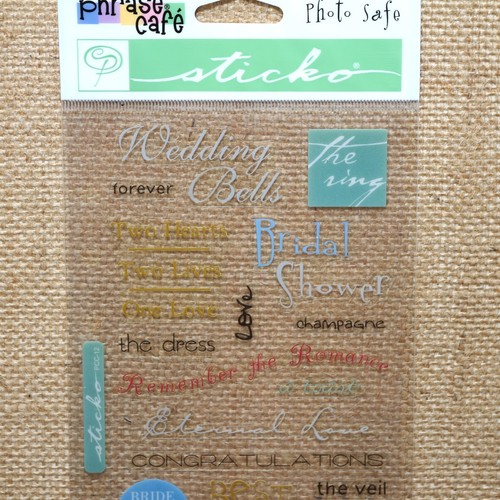 phrase café
Photo Safe
cp
sticko®
Wedding Bells
the ring
forever
Two Hearts
Two Lives
One Love
Bridal Shower
love
champagne
the dress
Remember the Romance
a toast
sticko
Eternal Love
CONGRATULATIONS
BRIDE
the veil